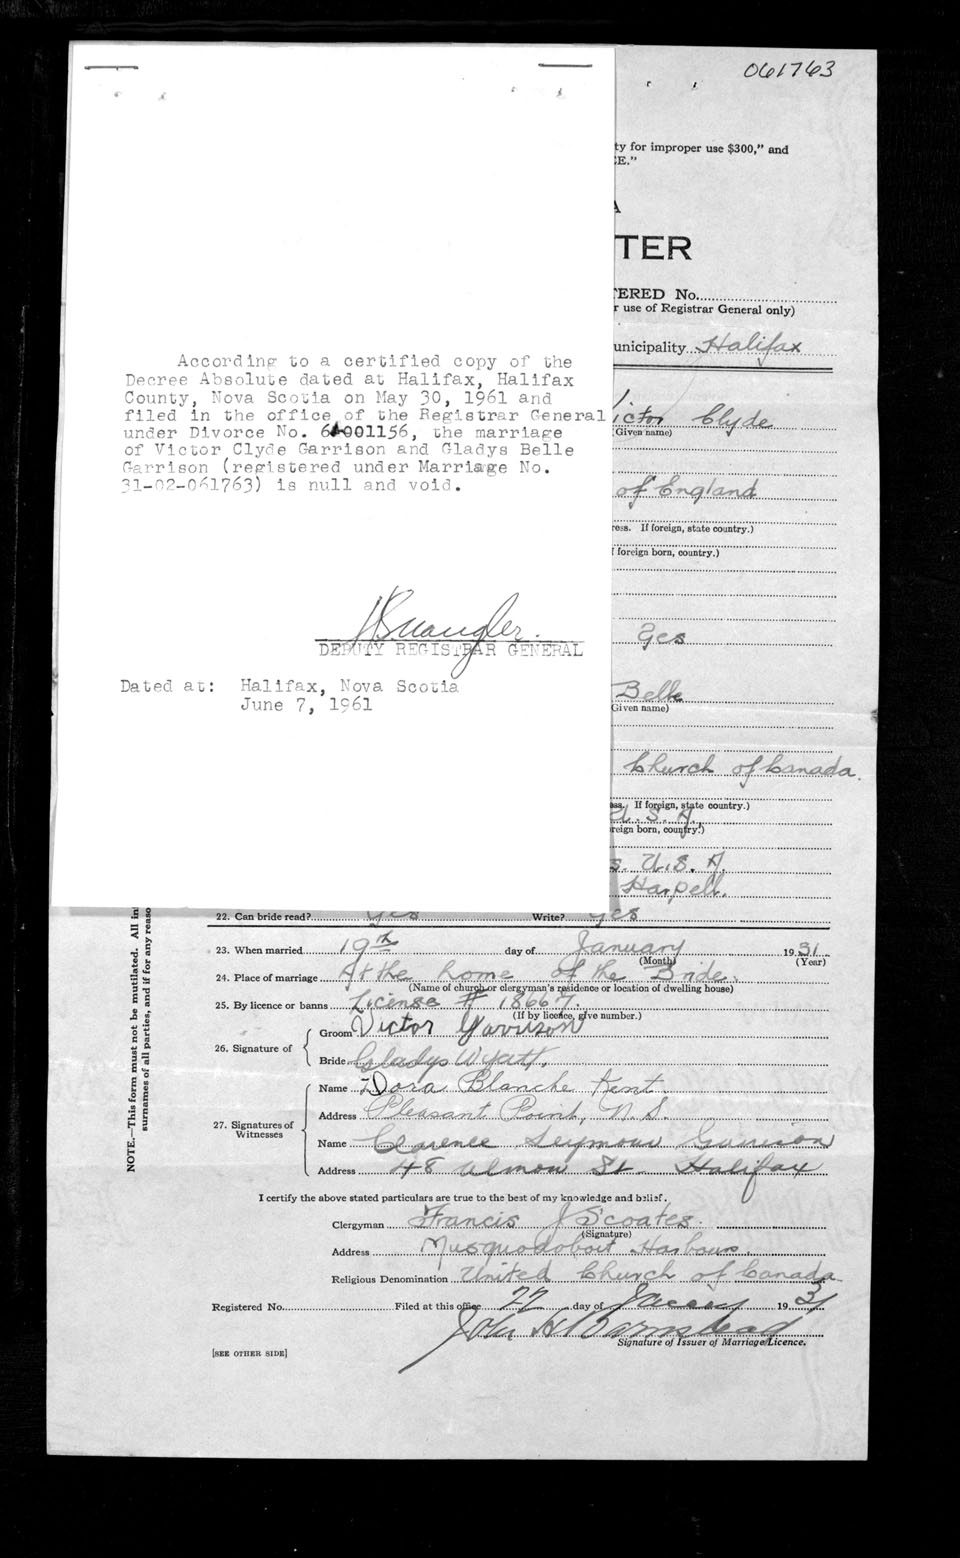 061763
ty for improper use $300," and
E."
A
TER
ERED No.
r use of Registrar General only)
unicipality Halifax
According to a certified copy of the
Decree Absolute dated at Halifax, Halifax
County, Nova Scotia on May 30, 1961 and
filed in the office of the Registrar General
under Divorce No. 61001156, the marriage
of Victor Clyde Garrison and Gladys Belle
Garrison (registered under Marriage No.
31-02-061763) is null and void.
DEPUTY REGISTRAR GENERAL
Dated at: Halifax, Nova Scotia
June 7, 1961
Victor Clyde
(Given name)
of England
ress. If foreign, state country.)
f foreign born, country.)
Yes
Belle
(Given name)
Church of Canada.
ess. If foreign, state country.)
U. S. A.
reign born, country.)
s. U.S. A.
Harpell.
22. Can bride read? Yes Write? Yes
23. When married 19th day of January 1931
(Month) (Year)
24. Place of marriage At the home of the Bride.
(Name of church or clergyman's residence or location of dwelling house)
25. By licence or banns License # 18667.
(If by licence, give number.)
26. Signature of
Groom Victor Garrison
Bride Gladys Wyatt.
27. Signatures of Witnesses
Name Dora Blanche Kent
Address Pleasant Point, N. S.
Name Clarence Seymour Garrison
Address 48 Almon St. Halifax
I certify the above stated particulars are true to the best of my knowledge and belief.
Clergyman Francis J Scoates.
(Signature)
Address Musquodoboit Harbour.
Religious Denomination United Church of Canada
Registered No. Filed at this office 22 day of 1931
John H Barnstead
Signature of Issuer of Marriage Licence.
[SEE OTHER SIDE]
NOTE.—This form must not be mutilated. All in
surnames of all parties, and if for any reaso